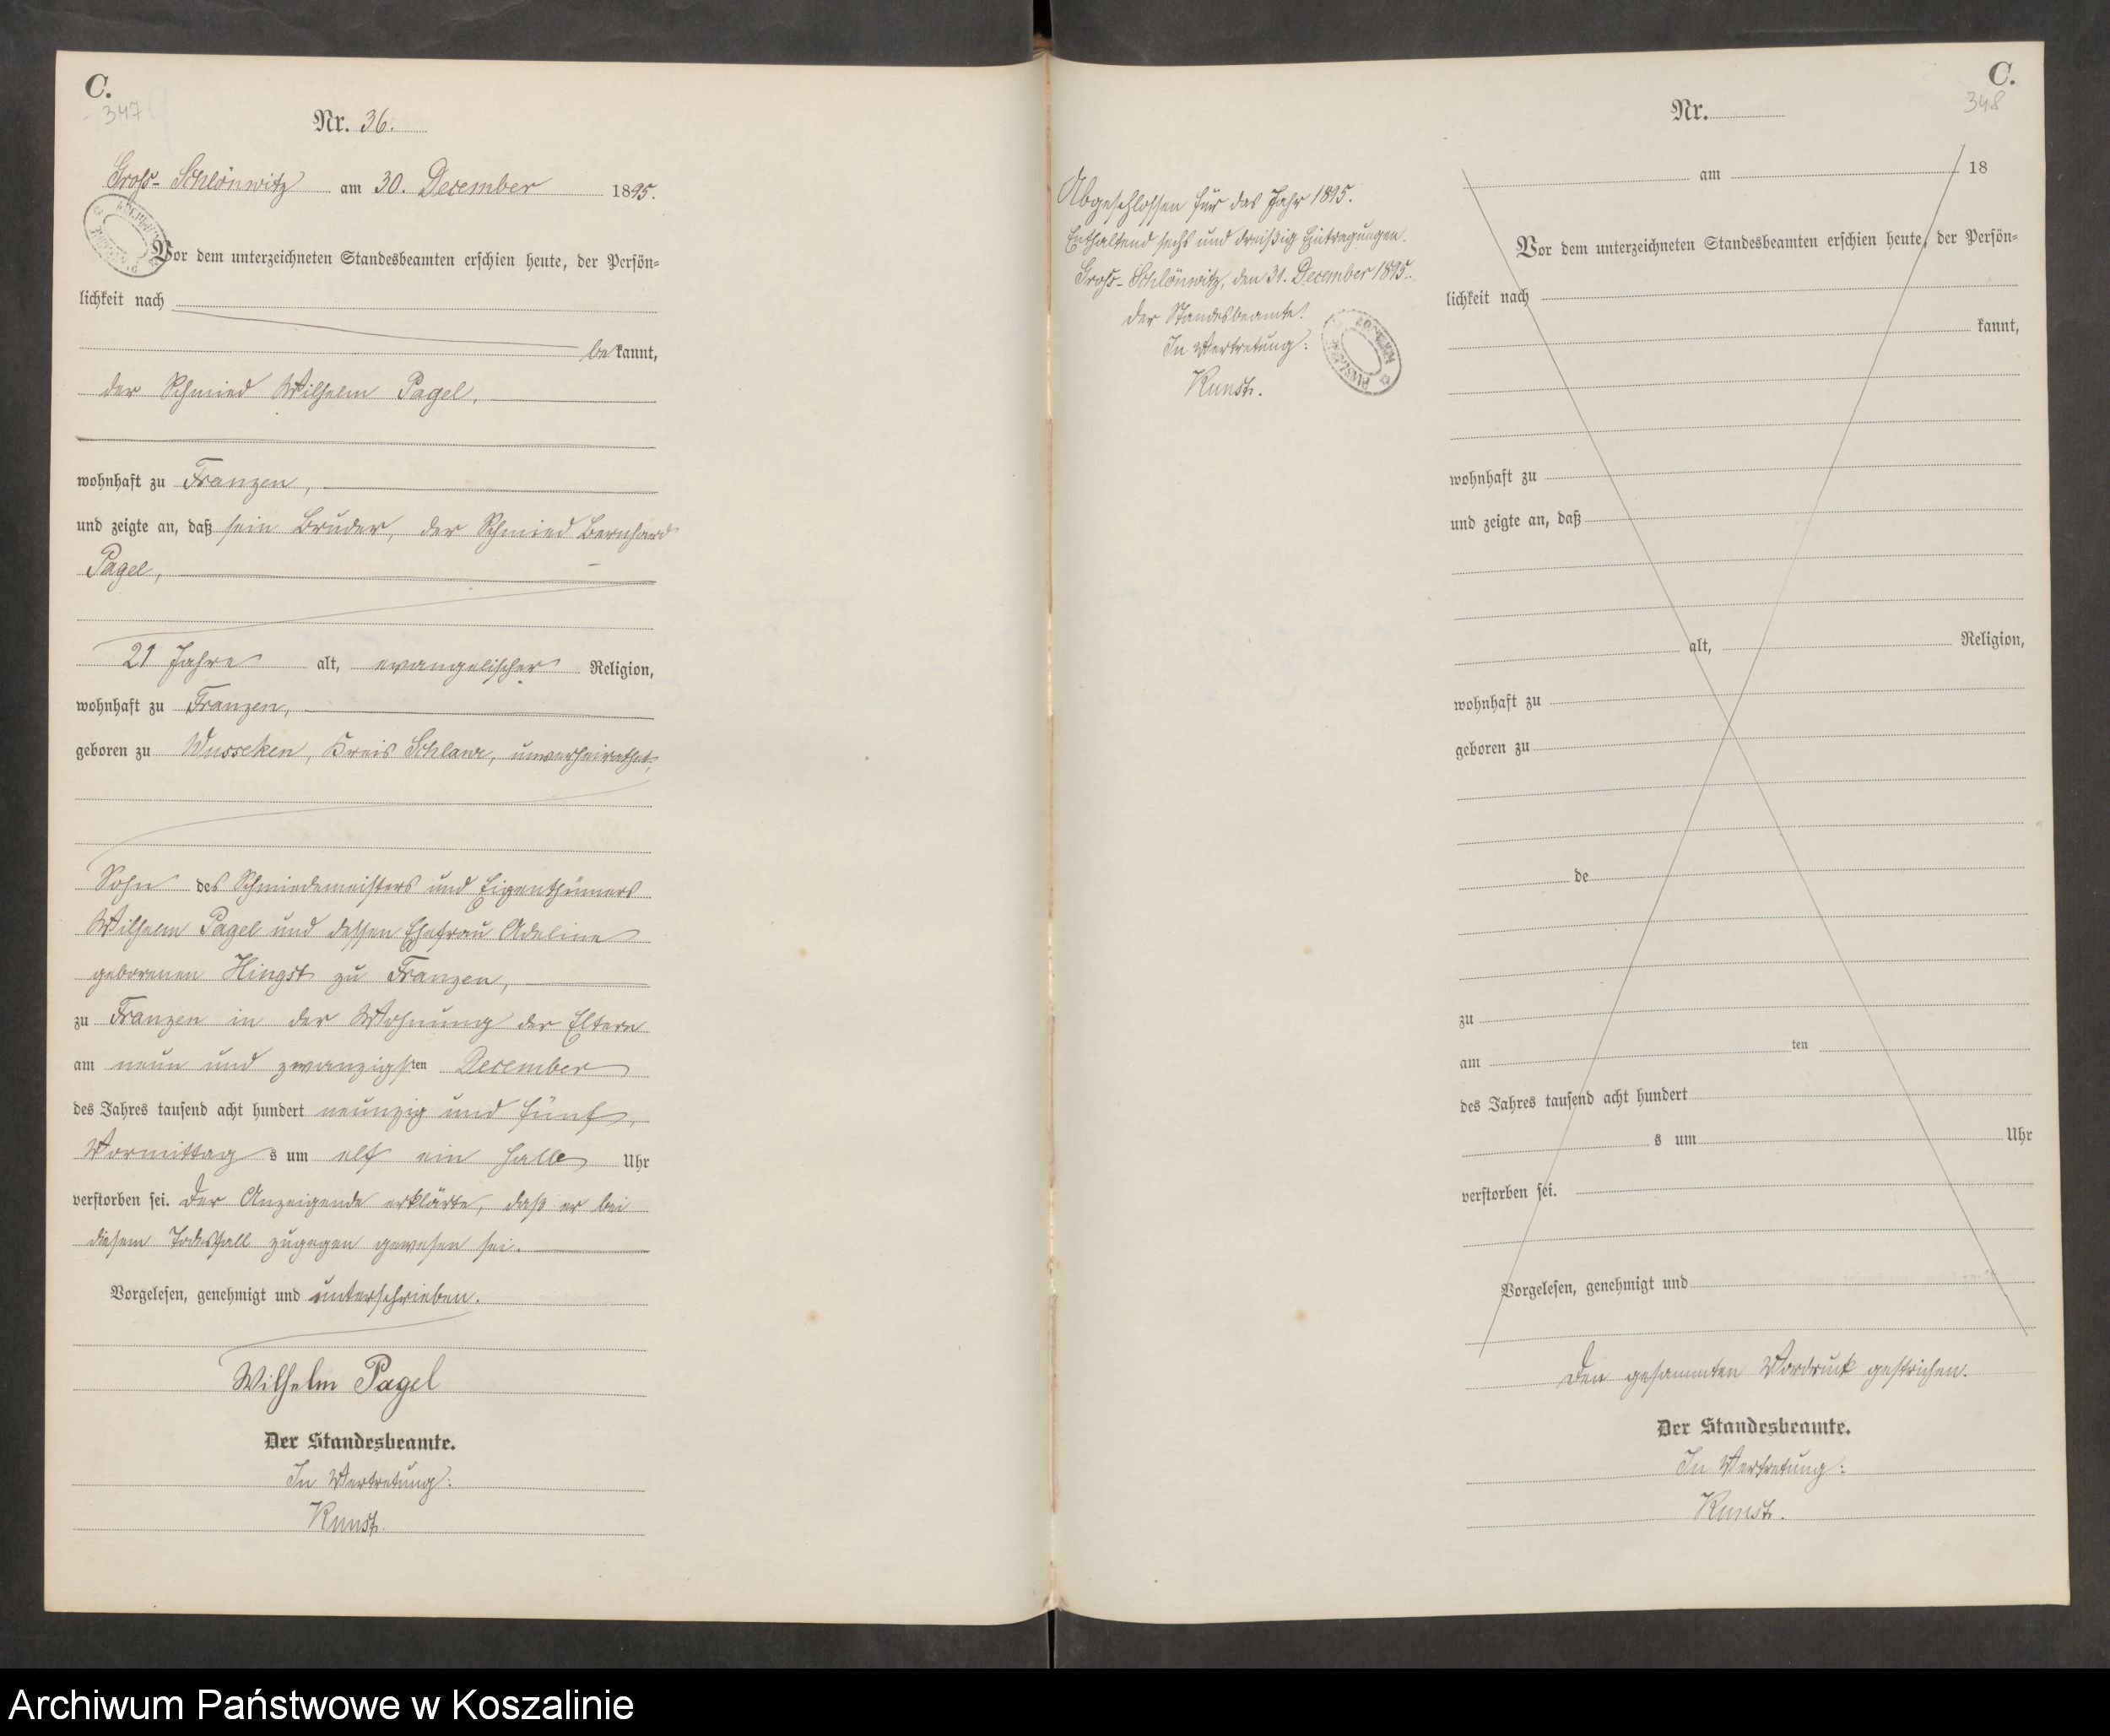 C.
347
Nr. 36.
Gross-Schlönwitz am 30. December 1895.
Vor dem unterzeichneten Standesbeamten erschien heute, der Persön=
lichkeit nach
bekannt,
der Schmied Wilhelm Pagel,
wohnhaft zu Franzen,
und zeigte an, daß sein Bruder, der Schmied Bernhard
Pagel,
21 Jahre alt, evangelischer Religion,
wohnhaft zu Franzen,
geboren zu Wusseken, Kreis Schlawe, unverheirathet,
Sohn des Schmiedemeisters und Eigenthümers
Wilhelm Pagel und dessen Ehefrau Adeline
geborenen Hingst zu Franzen,
zu Franzen in der Wohnung der Eltern
am neun und zwanzigsten December
des Jahres tausend acht hundert neunzig und fünf,
Vormittags um elf ein halb Uhr
verstorben sei. Der Anzeigende erklärte, daß er bei
diesem Todesfall zugegen gewesen sei.
Vorgelesen, genehmigt und unterschrieben.
Wilhelm Pagel
Der Standesbeamte.
In Vertretung:
Kunst.
Abgeschlossen für das Jahr 1895.
Enthaltend sechs und dreißig Eintragungen.
Gross-Schlönwitz, den 31. December 1895.
Der Standesbeamte.
In Vertretung:
Kunst.
C.
348
Nr.
am 18
Vor dem unterzeichneten Standesbeamten erschien heute, der Persön=
lichkeit nach
kannt,
wohnhaft zu
und zeigte an, daß
alt, Religion,
wohnhaft zu
geboren zu
de
zu
am ten
des Jahres tausend acht hundert
s um Uhr
verstorben sei.
Vorgelesen, genehmigt und
Den gesammten Vordruck gestrichen.
Der Standesbeamte.
In Vertretung:
Kunst.
Archiwum Państwowe w Koszalinie